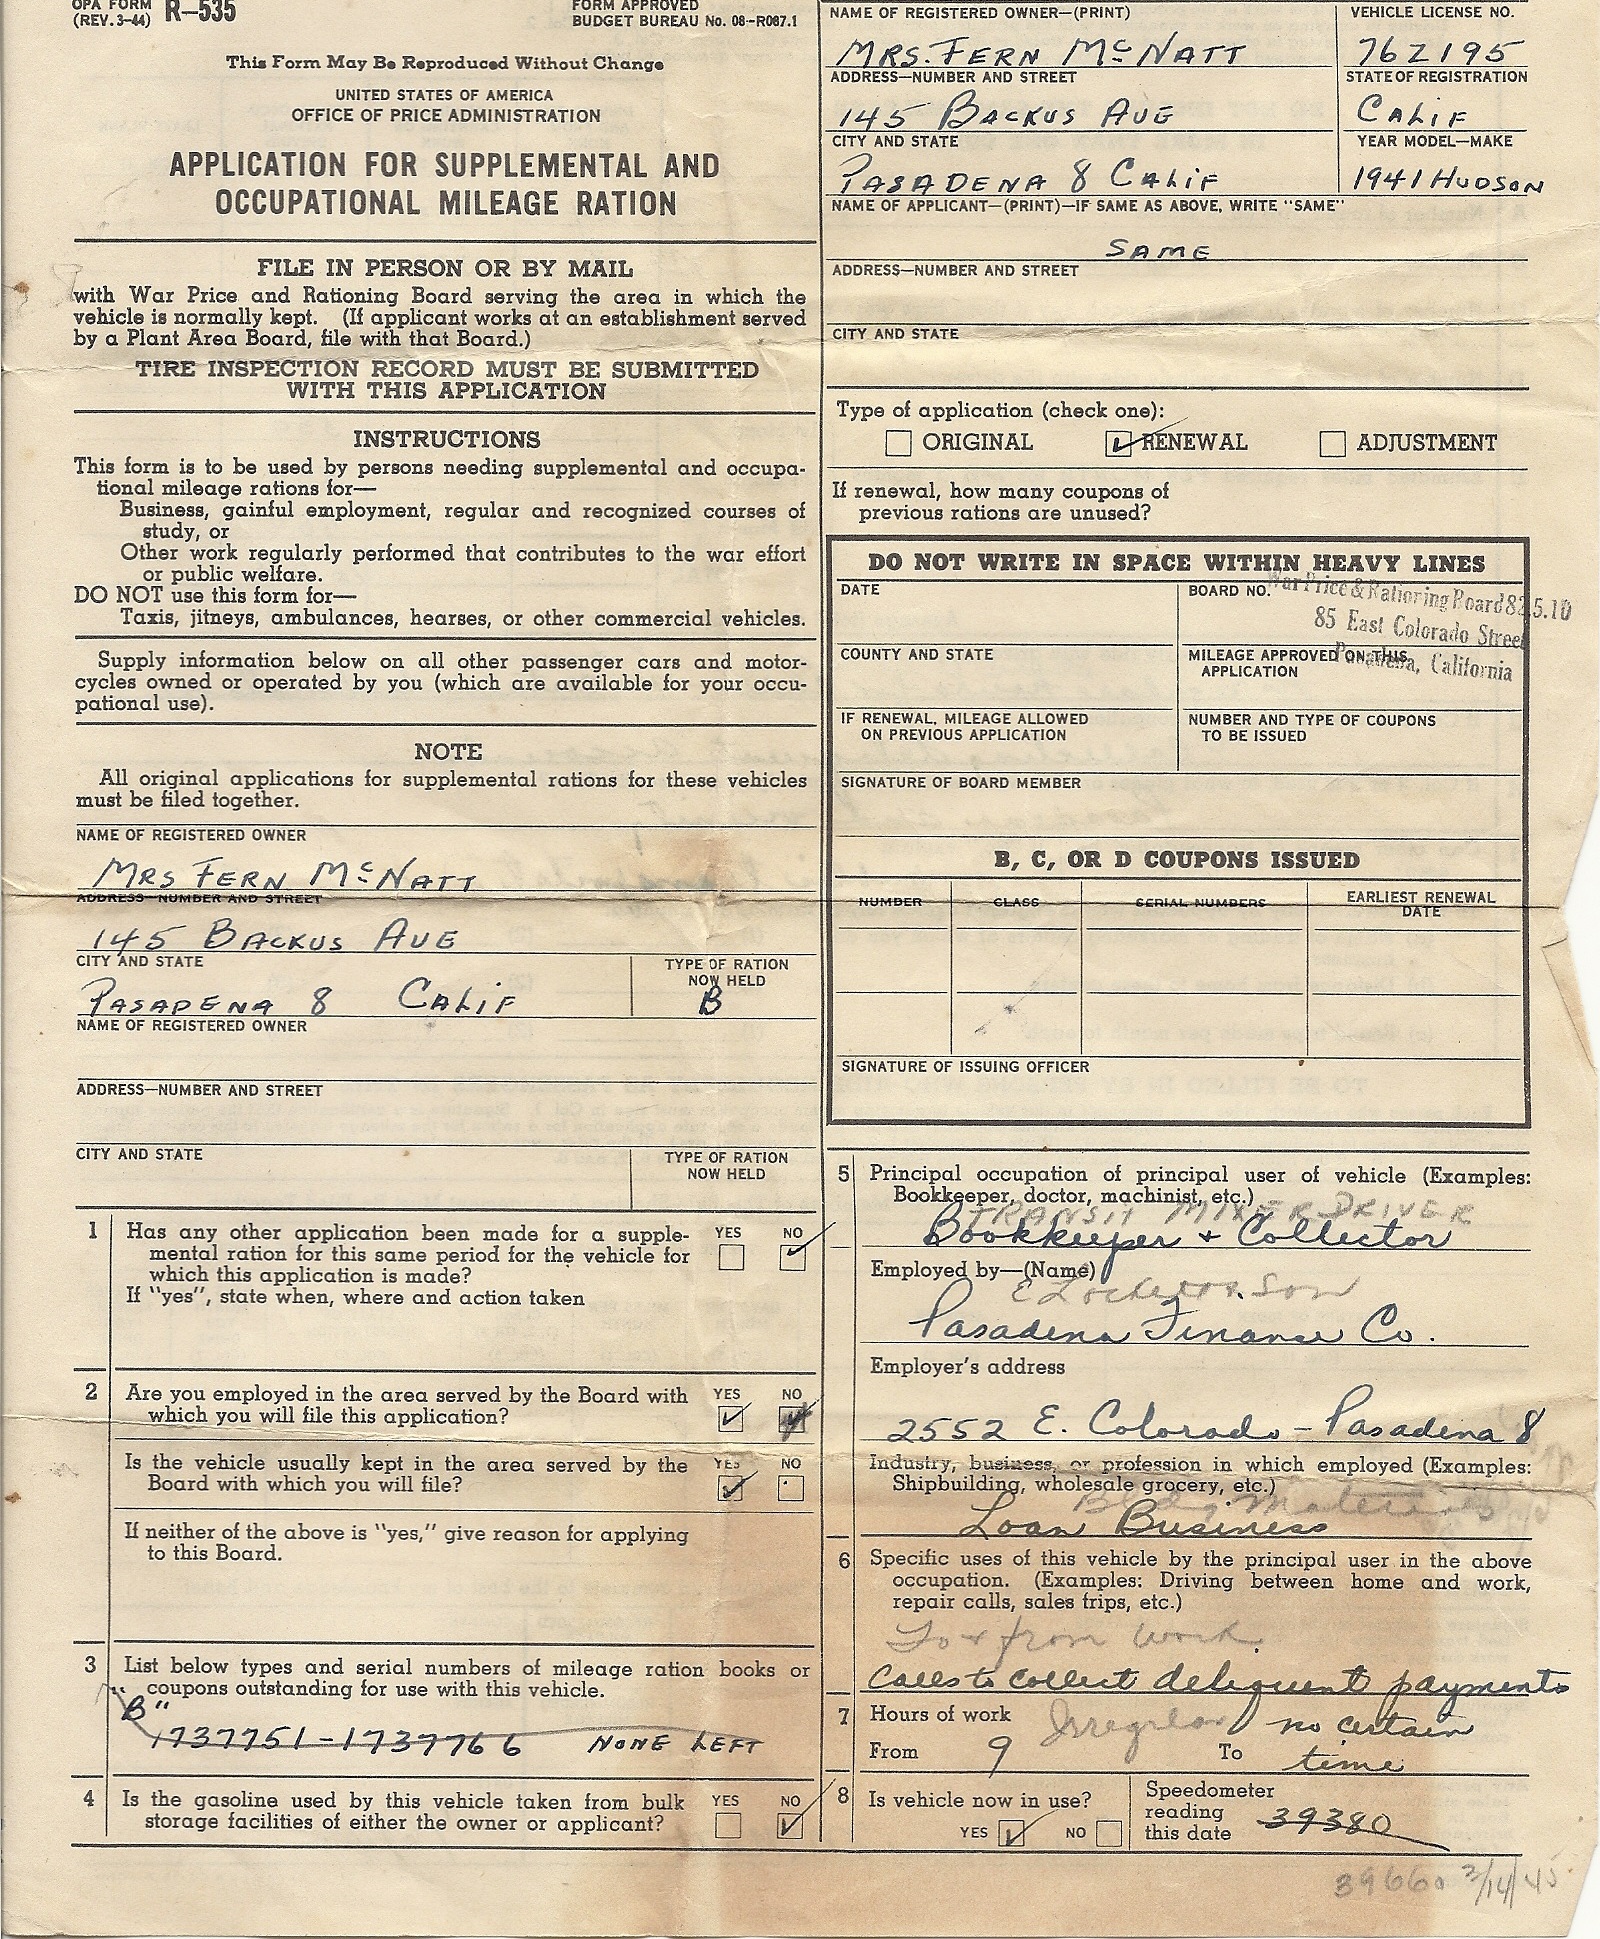 OPA FORM R-535
(REV. 3-44)
FORM APPROVED
BUDGET BUREAU No. 08-R087.1
This Form May Be Reproduced Without Change
UNITED STATES OF AMERICA
OFFICE OF PRICE ADMINISTRATION
APPLICATION FOR SUPPLEMENTAL AND
OCCUPATIONAL MILEAGE RATION
FILE IN PERSON OR BY MAIL
with War Price and Rationing Board serving the area in which the
vehicle is normally kept. (If applicant works at an establishment served
by a Plant Area Board, file with that Board.)
TIRE INSPECTION RECORD MUST BE SUBMITTED
WITH THIS APPLICATION
INSTRUCTIONS
This form is to be used by persons needing supplemental and occupa-
tional mileage rations for—
Business, gainful employment, regular and recognized courses of
study, or
Other work regularly performed that contributes to the war effort
or public welfare.
DO NOT use this form for—
Taxis, jitneys, ambulances, hearses, or other commercial vehicles.
Supply information below on all other passenger cars and motor-
cycles owned or operated by you (which are available for your occu-
pational use).
NOTE
All original applications for supplemental rations for these vehicles
must be filed together.
NAME OF REGISTERED OWNER
MRS FERN McNATT
ADDRESS—NUMBER AND STREET
145 BACKUS AVE
CITY AND STATE
TYPE OF RATION
NOW HELD
PASADENA 8 CALIF
B
NAME OF REGISTERED OWNER
ADDRESS—NUMBER AND STREET
CITY AND STATE
TYPE OF RATION
NOW HELD
1 Has any other application been made for a supple-
mental ration for this same period for the vehicle for
which this application is made?
YES NO
If "yes", state when, where and action taken
2 Are you employed in the area served by the Board with
which you will file this application?
YES NO
Is the vehicle usually kept in the area served by the
Board with which you will file?
YES NO
If neither of the above is "yes," give reason for applying
to this Board.
3 List below types and serial numbers of mileage ration books or
coupons outstanding for use with this vehicle.
"B"
1737751-1737766 NONE LEFT
4 Is the gasoline used by this vehicle taken from bulk
storage facilities of either the owner or applicant?
YES NO
NAME OF REGISTERED OWNER—(PRINT)
VEHICLE LICENSE NO.
MRS. FERN McNATT
76Z195
ADDRESS—NUMBER AND STREET
STATE OF REGISTRATION
145 BACKUS AVE
CALIF
CITY AND STATE
YEAR MODEL—MAKE
PASADENA 8 CALIF
1941 HUDSON
NAME OF APPLICANT—(PRINT)—IF SAME AS ABOVE, WRITE "SAME"
SAME
ADDRESS—NUMBER AND STREET
CITY AND STATE
Type of application (check one):
ORIGINAL RENEWAL ADJUSTMENT
If renewal, how many coupons of
previous rations are unused?
DO NOT WRITE IN SPACE WITHIN HEAVY LINES
DATE
BOARD NO.
War Price & Rationing Board 82.5.10
85 East Colorado Street
Pasadena, California
COUNTY AND STATE
MILEAGE APPROVED ON THIS
APPLICATION
IF RENEWAL, MILEAGE ALLOWED
ON PREVIOUS APPLICATION
NUMBER AND TYPE OF COUPONS
TO BE ISSUED
SIGNATURE OF BOARD MEMBER
B, C, OR D COUPONS ISSUED
NUMBER CLASS SERIAL NUMBERS EARLIEST RENEWAL
DATE
SIGNATURE OF ISSUING OFFICER
5 Principal occupation of principal user of vehicle (Examples:
Bookkeeper, doctor, machinist, etc.)
TRANSIT MIXER DRIVER
Bookkeeper + Collector
Employed by—(Name)
Son
Pasadena Finance Co.
Employer's address
2552 E. Colorado - Pasadena 8
Industry, business, or profession in which employed (Examples:
Shipbuilding, wholesale grocery, etc.)
Bldg Materials
Loan Business
6 Specific uses of this vehicle by the principal user in the above
occupation. (Examples: Driving between home and work,
repair calls, sales trips, etc.)
To + from work
Calls to collect deliquent payments
7 Hours of work
Irregular
no certain
From 9 To time
8 Is vehicle now in use?
YES NO
Speedometer
reading
this date
39380
39660 3/14/45